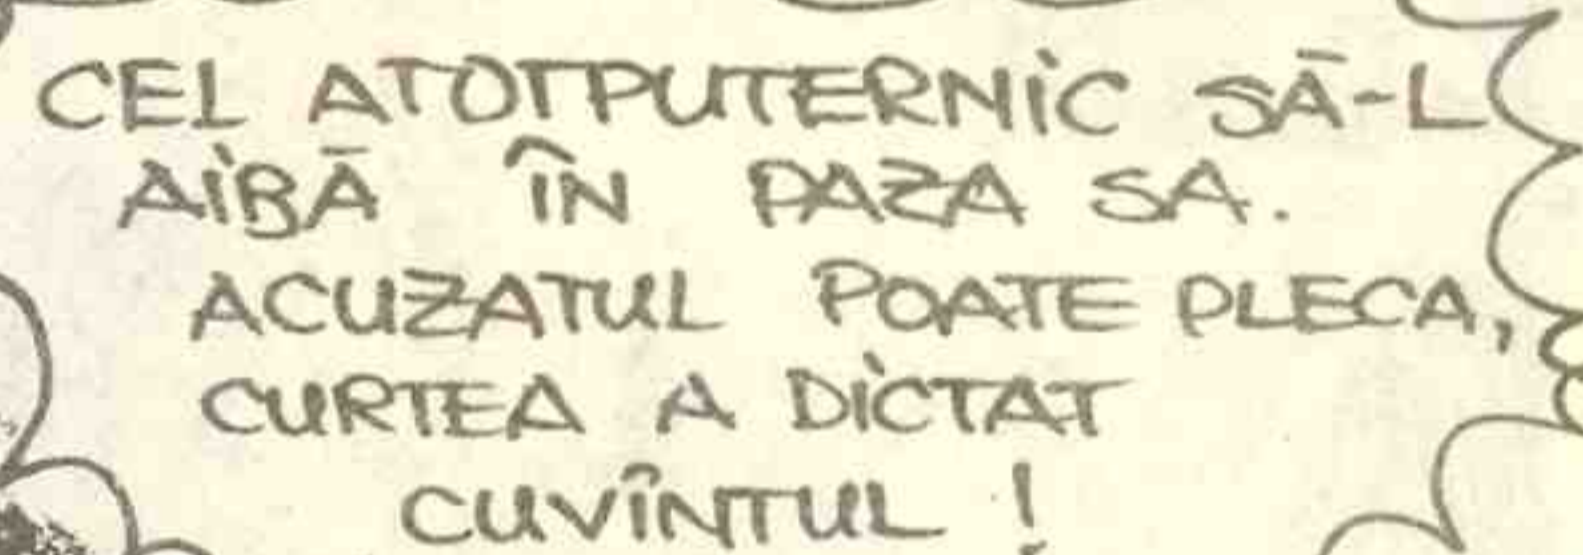 CEL ATOTPUTERNIC SĂ-L
AIBĂ ÎN PAZA SA.
ACUZATUL POATE PLECA,
CURTEA A DICTAT
CUVÎNTUL !